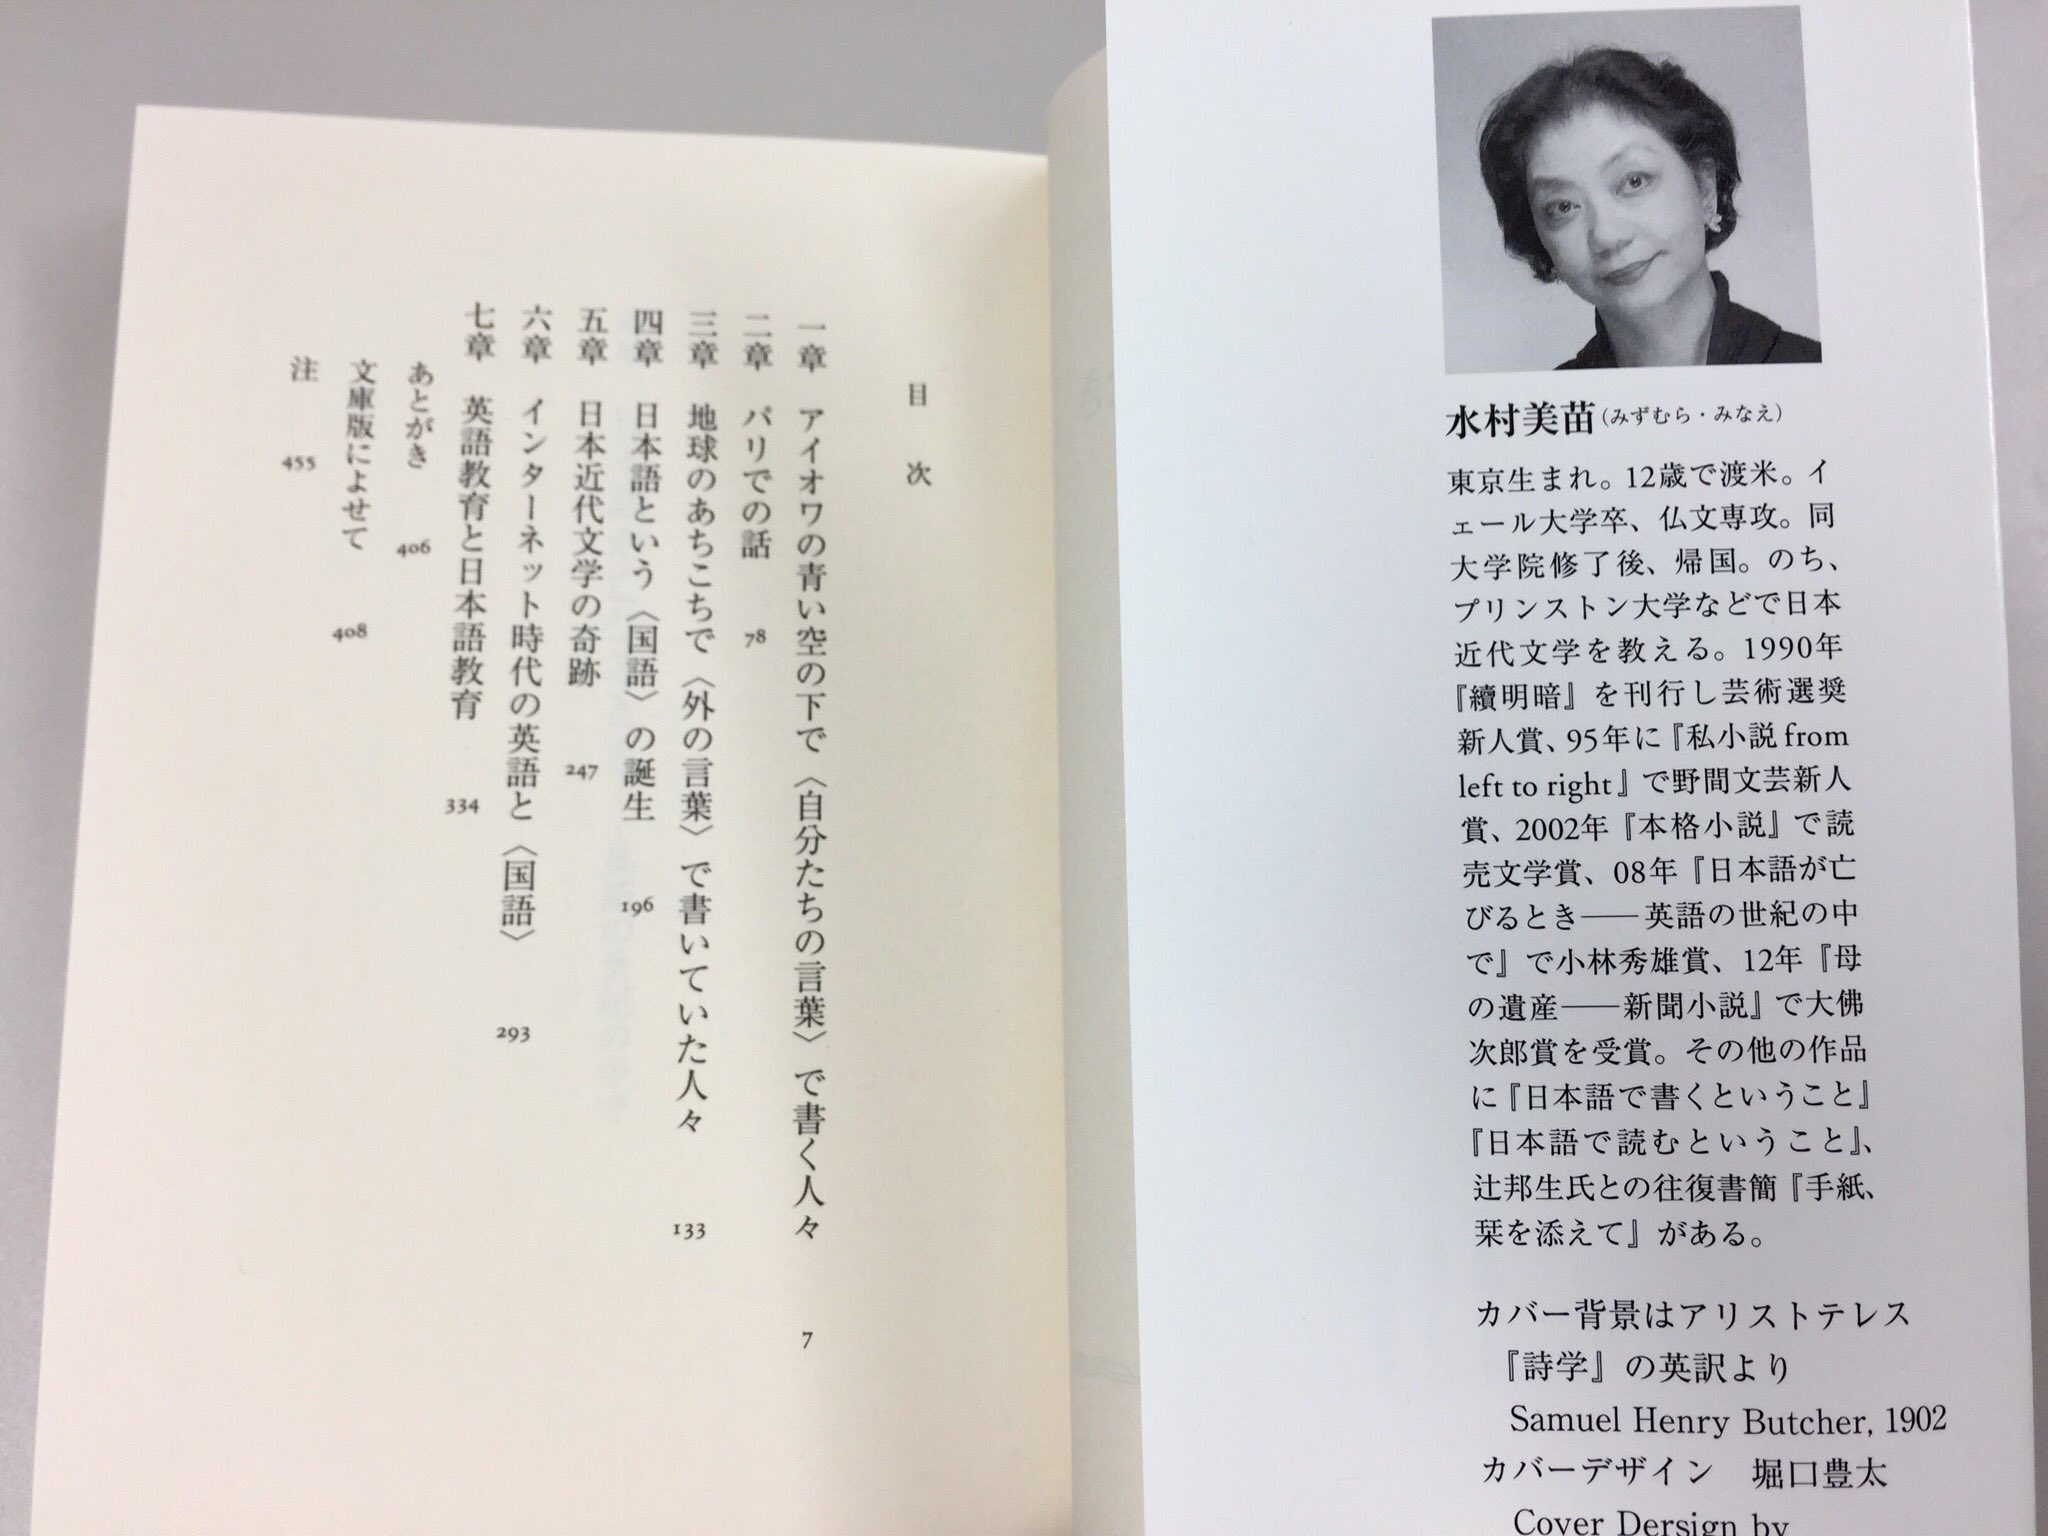 目次
一章 アイオワの青い空の下で〈自分たちの言葉〉で書く人々 7
二章 パリでの話 78
三章 地球のあちこちで〈外の言葉〉で書いていた人々 133
四章 日本語という〈国語〉の誕生 196
五章 日本近代文学の奇跡 247
六章 インターネット時代の英語と〈国語〉 293
七章 英語教育と日本語教育 334
あとがき 406
文庫版によせて 408
注 455
水村美苗(みずむら・みなえ)
東京生まれ。12歳で渡米。イ
ェール大学卒、仏文専攻。同
大学院修了後、帰国。のち、
プリンストン大学などで日本
近代文学を教える。1990年
『續明暗』を刊行し芸術選奨
新人賞、95年に『私小説 from
left to right』で野間文芸新人
賞、2002年『本格小説』で読
売文学賞、08年『日本語が亡
びるとき――英語の世紀の中
で』で小林秀雄賞、12年『母
の遺産――新聞小説』で大佛
次郎賞を受賞。その他の作品
に『日本語で書くということ』
『日本語で読むということ』、
辻邦生氏との往復書簡『手紙、
栞を添えて』がある。
カバー背景はアリストテレス
『詩学』の英訳より
Samuel Henry Butcher, 1902
カバーデザイン 堀口豊太
Cover Dersign by